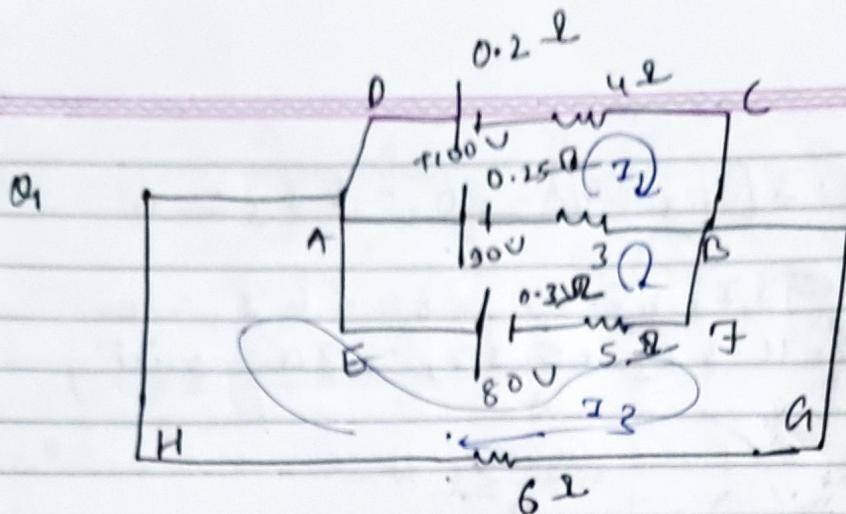 0.2 Ω
D 4Ω C
+100V
0.25Ω I
Q1
A 90V 3 B
0.3Ω
E 5Ω F
80V
I3
H G
6Ω